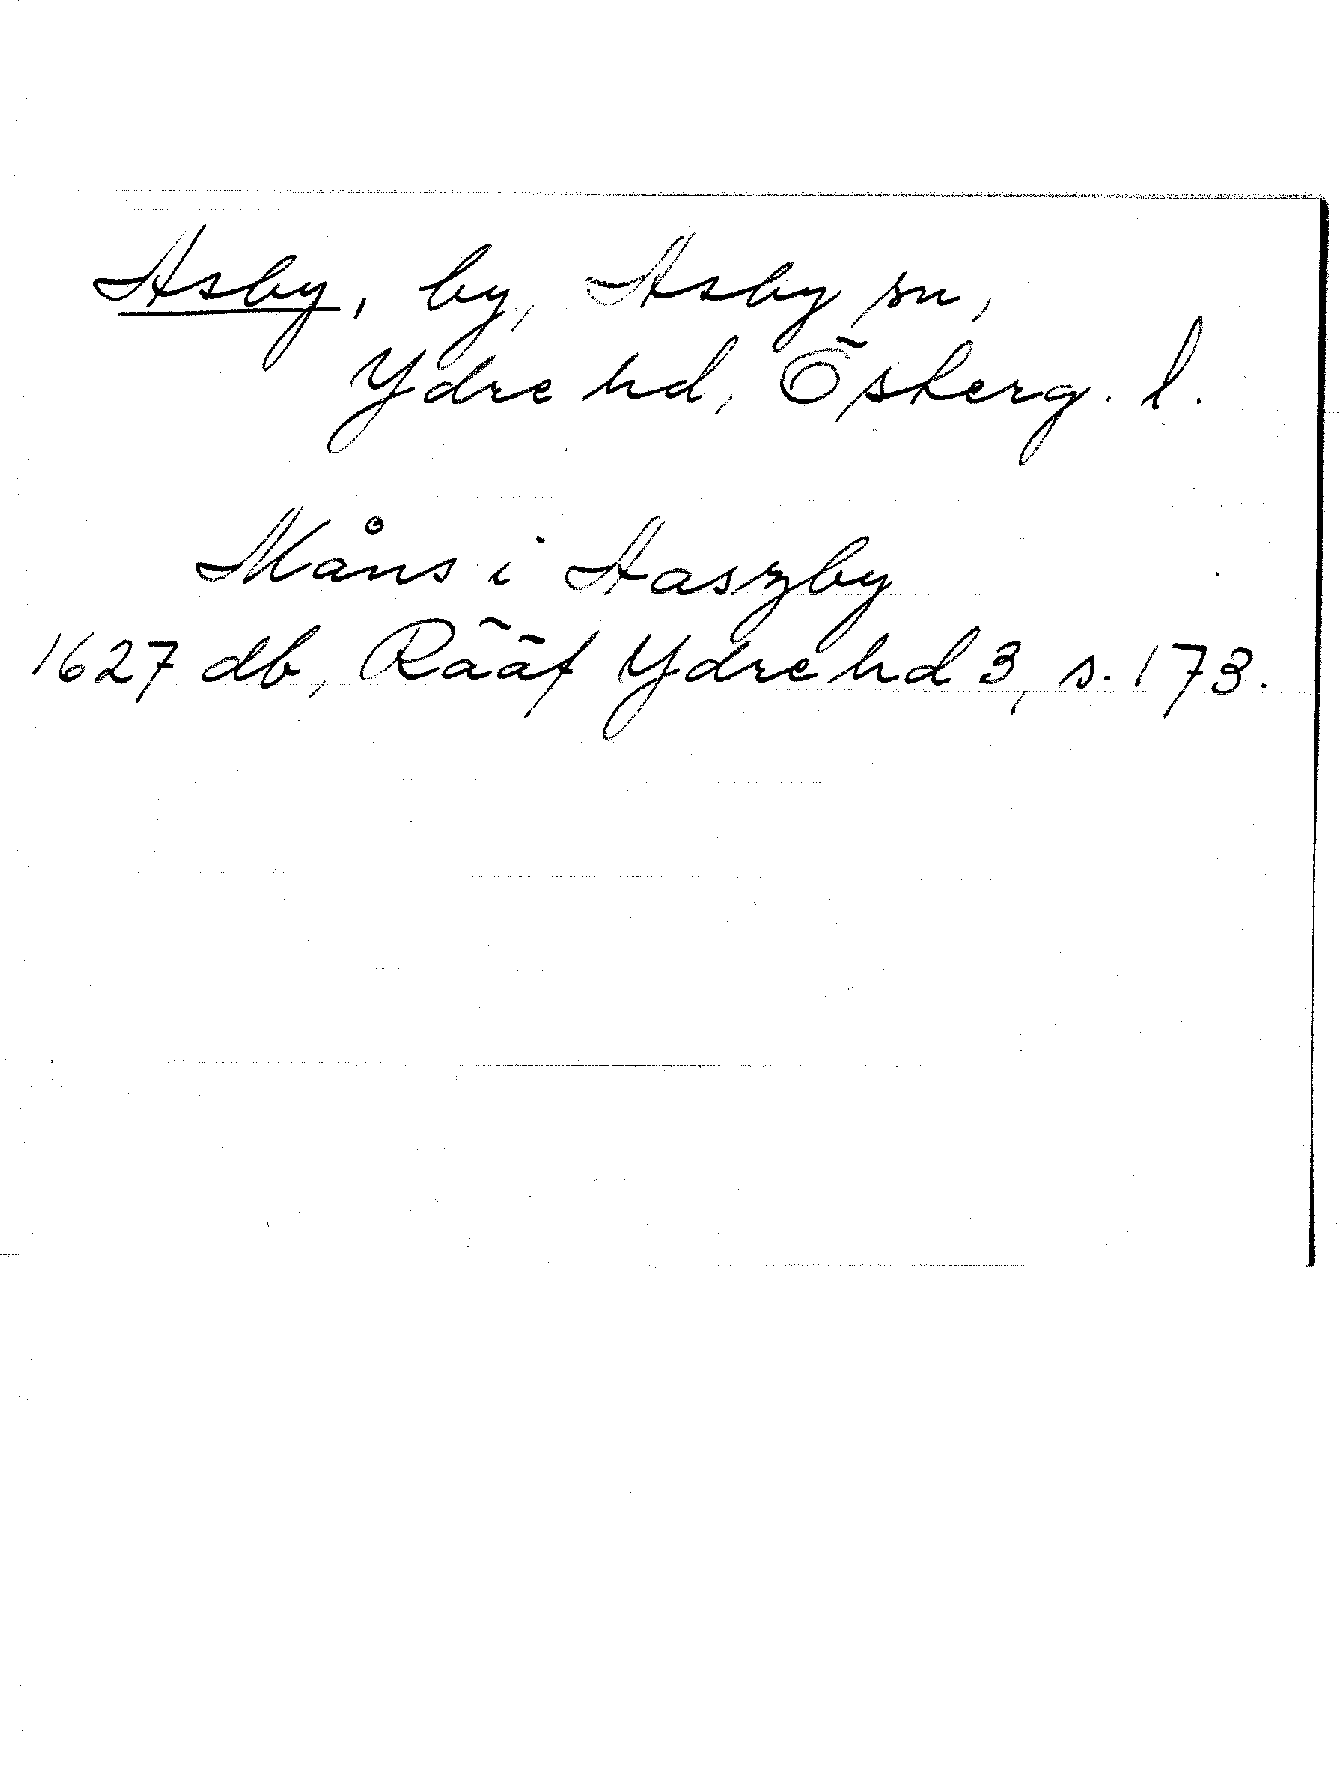 Asby, by, Asby sn,
Ydre hd, Österg. l.
Måns i Aaszby
1627 db, Rääf Ydre hd 3, s. 173.